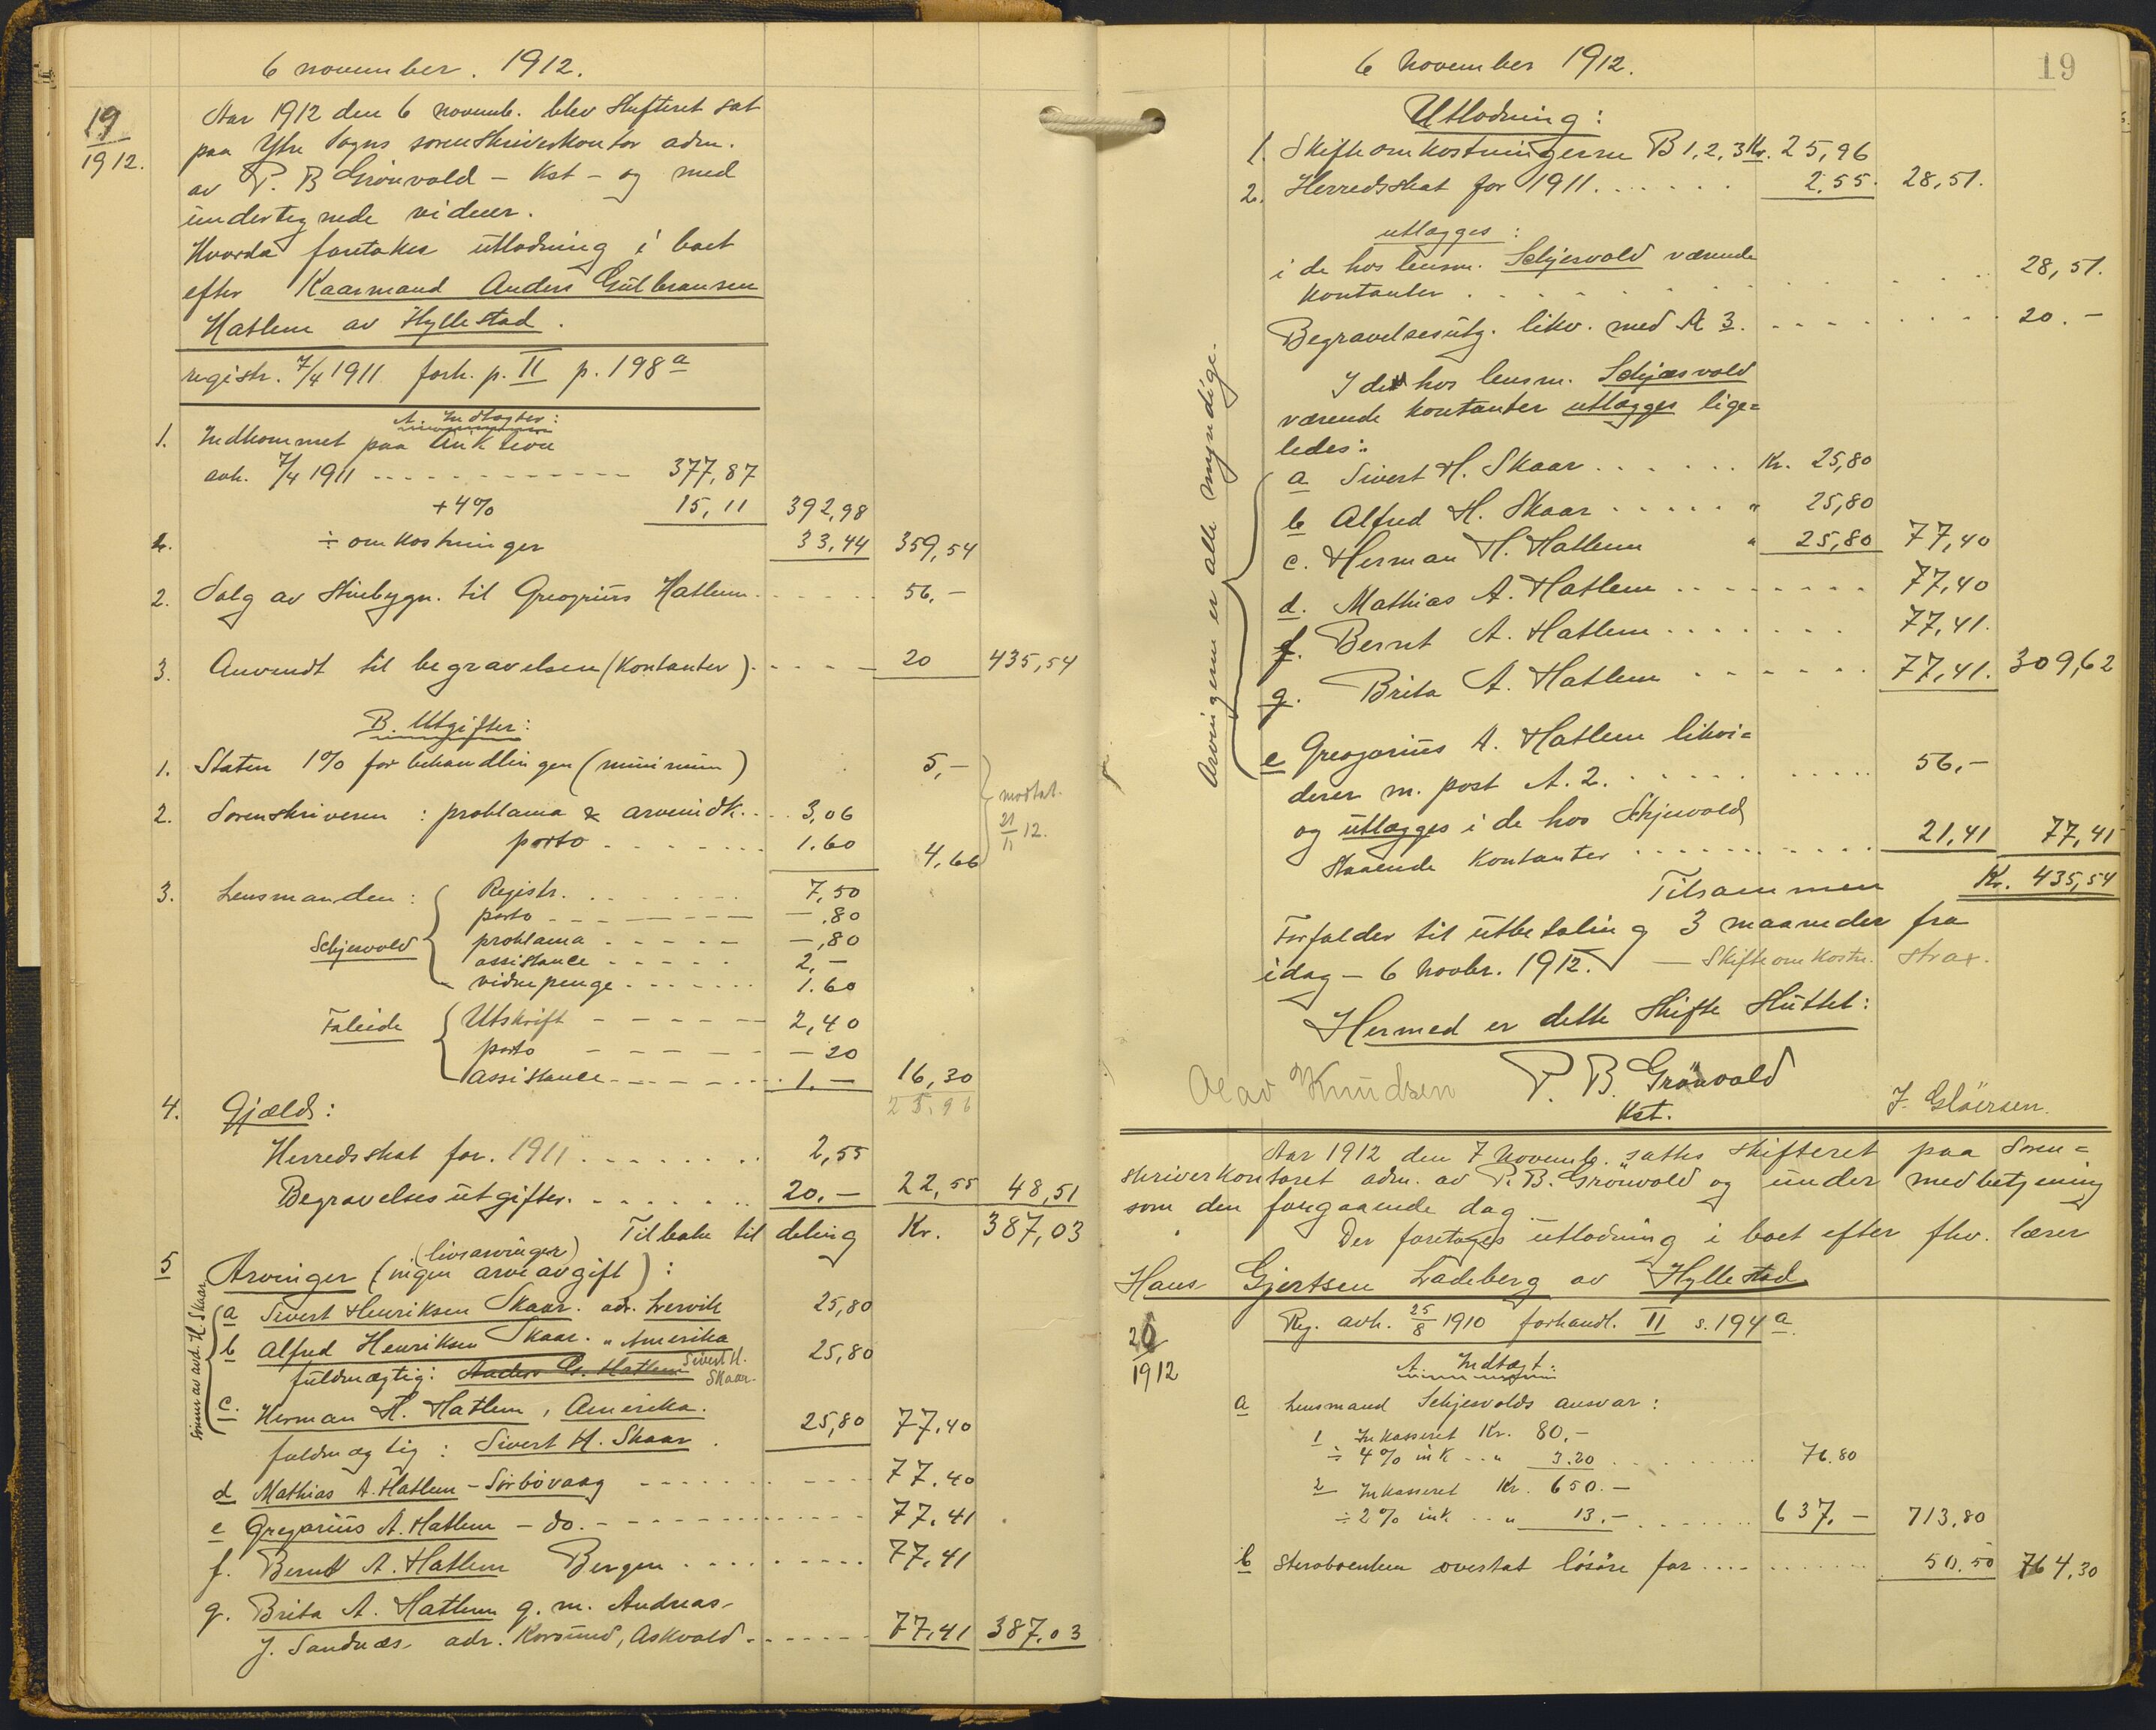 6 november. 1912.
19
1912.
Aar 1912 den 6 novemb. blev Skifteret sat
paa Ytre Sogns sorenskriverkontor adm.
av P. B Grönvold – Kst – og med
undertegnede vidner.
Hvorda foretokes utlodning i boet
efter Kaarmand Anders Gulbransen
Hatlem av Hyllestad.
registr. 7/4 1911 forh. p. II p. 198 a
A. Indtægter:
1. Indkommet paa auksion
avh. 7/4 1911 377,87
+ 4% 15,11 392,98
÷ omkostninger 33,44 359,54
2. Salg av Stuebygn. til Greogrius Hatlem 56,–
3. Anvendt til begravelsen (Kontanter) 20 435,54
B. Utgifter:
1. Staten 1% for behandlingen (minimum) 5,–
2. Sorenskriveren : proklama & arveindk. 3,06
porto 1.60 4,66
motat.
21/11 12.
3. Lensmanden : Registr. 7,50
porto –.80
Schjesvold proklama –,80
assistance 2,–
vidnepenge 1.60
Faleide Utskrift 2,40
porto –20
assistance 1.– 16,30
25,96
4. Gjæld:
Herredsskat for. 1911 2,55
Begravelsesutgifter. 20.– 22,55 48,51
Tilbake til deling Kr. 387,03
(livsarvinger)
5 Arvinger (ingen arveavgift) :
Sönner av avd. H. Skaar
a Sivert Henriksen Skaar. adr. Lervik 25,80
b Alfred Henriksen Skaar. " Amerika 25,80
fuldmægtig: Anders G. Hatlem Sivert H.
Skaar.
c. Herman H. Hatlem, Amerika. 25,80 77,40
fuldmægtig : Sivert H. Skaar.
d Mathias A. Hatlem – Sörbövaag 77,40
e Gregorius A. Hatlem – do. – 77,41
f. Bernt A. Hatlem Bergen 77,41
g. Brita A. Hatlem g. m. Andreas
J. Sandnæs adr. Korssund, Askvold 77,41 387,03
19
6 November 1912.
Utlodning :
1. Skifteomkostningerne B 1, 2, 3 Kr. 25,96
2. Herredsskat for 1911 2.55. 28,51.
utlægges :
i de hos lensm. Schjesvold værende
kontanter 28,51.
Begravelsesutg. likv. med A 3. 20.–
I de hos lensm. Schjesvold
værende kontanter utlægges lige=
ledes:
Arvingerne er alle myndige.
a Sivert H. Skaar Kr. 25,80
b Alfred H. Skaar " 25,80
c. Herman H. Hatlem " 25,80 77,40
d. Mathias A. Hatlem 77,40
f. Bernt A. Hatlem 77,41.
g. Brita A. Hatlem 77,41. 309,62
e Greogorius A. Hatlem likvi=
derer m. post A. 2. 56,–
og utlægges i de hos Schjesvold
staaende kontanter 21,41 77,41
Tilsammen Kr. 435,54
Forfalder til utbetaling 3 maaneder fra
idag – 6 novbr. 1912. – Skifteomkostn. strax.
Hermed er dette Skifte Sluttet:
Olav Knudsen P. B. Grönvold J. Glöersen.
Kst.
Aar 1912 den 7 Novemb. sattes skifteret paa Soren=
skriverkontoret adm. av P. B. Grönvold og under medbetjening
som den foregaaende dag.
Der foretoges utlodning i boet efter fhv. lærer
Hans Gjertsen Ladeberg av Hyllestad
20
1912
Reg. avh. 25/8 1910 forhandl. II s. 194 a.
A. Indtægt:
a Lensmand Schjesvolds ansvar :
1 Inkasseret Kr. 80.–
÷ 4% ink " 3.20 76.80
2 Inkasseret Kr. 650.–
÷ 2% ink " 13.– 637.– 713,80
b Sterboenken overtat lösöre for 50.50 764,30